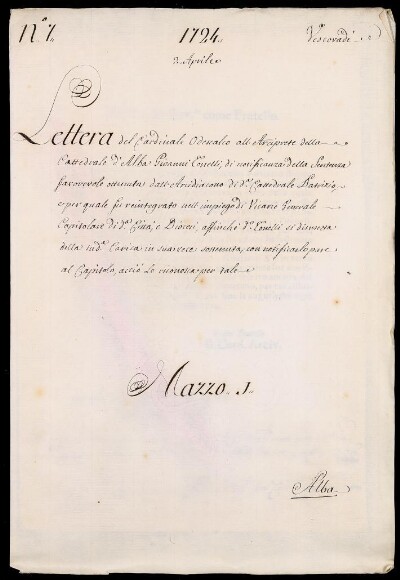 N.° 7. 1724. Vescovadi
2 Aprile
Lettera del Cardinale Odescalco all'Arciprete della
Cattedrale d'Alba Giovanni Conelli, di notificanza della Sentenza
favorevole ottenuta dall'Arcidiacono di d.ª Cattedrale
e per quale fu reintegrato nell'impiego di Vicario Generale
Capitolare di d.ª Città, e Diocesi, affinché d.° Conelli si dismetta
della sud.ª Carica in sua vece, con notificarlo pure
al Capitolo, acciò lo riconosca per tale
Mazzo. 1.
Alba